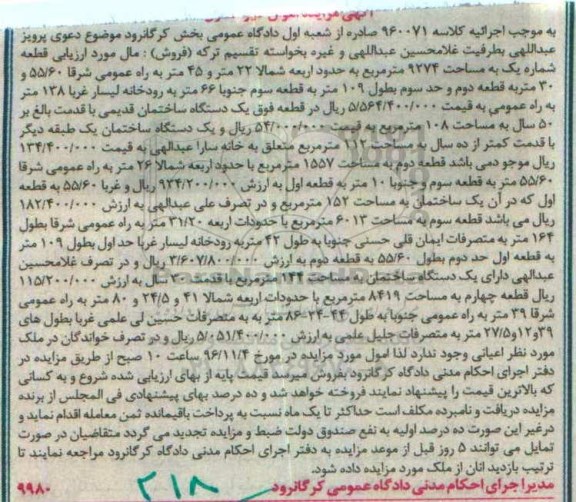 آگهی مزایده اموال غیر منقول
به موجب اجرائیه کلاسه ۹۶۰۰۷۱ صادره از شعبه اول دادگاه عمومی بخش کرگانرود موضوع دعوی پرویز
عبداللهی بطرفیت غلامحسین عبداللهی و غیره بخواسته تقسیم ترکه (فروش) : مال مورد ارزیابی قطعه
شماره یک به مساحت ۹۲۷۴ مترمربع به حدود اربعه شمالا ۲۲ متر و ۴۵ متر به راه عمومی شرقا ۵۵/۶۰ و
۳۰ متربه قطعه دوم و حد سوم بطول ۱۰۹ متر به قطعه سوم جنوبا ۶۶ متر به رودخانه لیسار غربا ۱۳۸ متر
به راه عمومی به قیمت ۵/۵۶۴/۴۰۰/۰۰۰ ریال در قطعه فوق یک دستگاه ساختمان قدیمی با قدمت بالغ بر
۵۰ سال به مساحت ۱۰۸ مترمربع به قیمت ۵۴/۰۰۰/۰۰۰ ریال و یک دستگاه ساختمان یک طبقه دیگر
با قدمت کمتر از ده سال به مساحت ۱۱۲ مترمربع متعلق به خانه سارا عبدالهی به قیمت ۱۳۴/۴۰۰/۰۰۰
ریال موجو دمی باشد قطعه دوم به مساحت ۱۵۵۷ مترمربع با حدود اربعه شمالا ۲۶ متر به راه عمومی شرقا
۵۵/۶۰ متر به قطعه سوم و جنوبا ۱۰ متر به قطعه اول به ارزش ۹۳۴/۲۰۰/۰۰۰ ریال و غربا ۵۵/۶۰ به قطعه
اول که در آن یک ساختمان به مساحت ۱۵۲ مترمربع و در تصرف علی عبدالهی به ارزش ۱۸۲/۴۰۰/۰۰۰
ریال می باشد قطعه سوم به مساحت ۶۰۱۳ مترمربع با حدودات اربعه ۳۱/۲۰ متر به راه عمومی شرقا بطول
۱۶۴ متر به متصرفات ایمان قلی حسنی جنوبا به طول ۴۲ متربه رودخانه لیسار غربا حد اول بطول ۱۰۹ متر
به قطعه اول حد دوم بطول ۵۵/۶۰ به قطعه دوم به ارزش ۳/۶۰۷/۸۰۰/۰۰۰ ریال و در تصرف غلامحسین
عبدالهی دارای یک دستگاه ساختمان به مساحت ۱۴۴ مترمربع با قدمت ۳۰ سال به ارزش ۱۱۵/۲۰۰/۰۰۰
ریال قطعه چهارم به مساحت ۸۴۱۹ مترمربع با حدودات اربعه شمالا ۴۱ و ۲۴/۵ و ۸۰ متر به راه عمومی
شرقا ۳۹ متر به راه عمومی جنوبا به طول ۴۴-۲۴-۸۶ متر به به متصرفات حسین لی علمی غربا بطول های
۳۹و۱۲و۲۷/۵ متر به متصرفات جلیل علمی به ارزش ۵/۰۵۱/۴۰۰/۰۰۰ ریال و در تصرف خواندگان در ملک
مورد نظر اعیانی وجود ندارد لذا امول مورد مزایده در مورخ ۹۶/۱۱/۴ ساعت ۱۰ صبح از طریق مزایده در
دفتر اجرای احکام مدنی دادگاه کرگانرود بفروش میرسد قیمت پایه از بهای ارزیابی شده شروع و به کسانی
که بالاترین قیمت را پیشنهاد نمایند فروخته خواهد شد و ده درصد بهای پیشنهادی فی المجلس از برنده
مزایده دریافت و نامبرده مکلف است حداکثر تا یک ماه نسبت به پرداخت باقیمانده ثمن معامله اقدام نماید و
درغیر این صورت ده درصد اولیه به نفع صندوق دولت ضبط و مزایده تجدید می گردد متقاضیان در صورت
تمایل می توانند ۵ روز قبل از موعد مزایده به دفتر اجرای احکام مدنی دادگاه کرگانرود مراجعه نمایند تا
ترتیب بازدید انان از ملک مورد مزایده داده شود.
مدیراجرای احکام مدنی دادگاه عمومی کرگانرود ۲۱۸ ۹۹۸۰